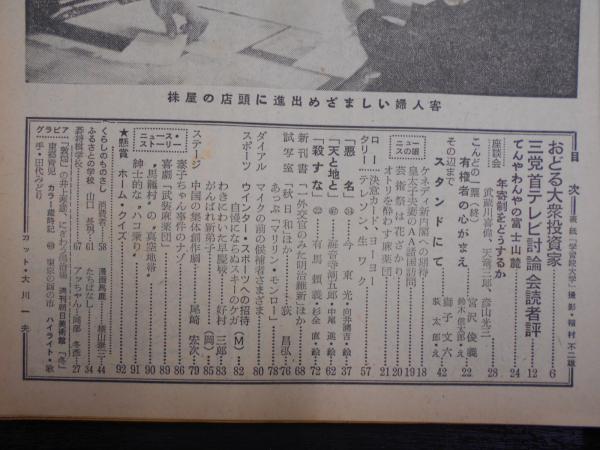 客人婦いしまざめ出進に頭店の屋株
目次
表紙「学習院大学」撮影・稲村不二雄
おどる大衆投資家 6
三党首テレビ討論会読者評 12
てんやわんやの富士山麓 24
年寄制をどうするか
座談会
武蔵川喜偉・天竜三郎、彦山光三 28
こんどの一票(終)
有権者の心がまえ
宮沢俊義
鈴木信太郎・え 22
その辺まで
スタンドにて
獅子文六
荻太郎・え 42
ニュースの一週
ケネディ新内閣への期待 18
皇太子夫妻のAA諸国訪問 19
芸術祭は花ざかり 20
オトリを酔わす麻薬団 21
ロータリー
決意カード、ヨーヨー
テレソン、生ワク 57
「悪名」
今東光・向井潤吉・絵 37
「天と地と」
海音寺潮五郎・中尾進・絵 62
「殺すな」
有馬頼義・杉全直・絵 72
新刊書
「一外交官のみた明治維新」ほか 68
試写室
「秋日和」ほか 荻昌弘 76
あっぷ「マリリン・モンロー」 78
ダイアル
マイクの前の候補者さまざま 80
スポーツ
ウインター・スポーツへの招待(M) 82
自慢にならぬスキーのケガ 83
わきにわいた高慶校 好村三郎
がんばれ新弟子 (岡) 85
ステージ
中国の集体創作劇 尾崎宏次 79
ニュース・ストーリー
豪子ちゃん事件のナゾ 86
喜劇「武装麻薬団」 89
"馬籠村"の"真空地帯" 90
紳士的な"ハコ乗り" 91
★懸賞 ホーム・クイズ 92
くらしのものさし
消費者 58
漫画馬鹿 横山泰三 44
ふるさとの学校 山口県 61
たちばなし 34
若将棋学校 67
アッちゃん 岡部冬彦 27
グラビア
週刊朝日美術館「冬」
東郷青児 カラー歳時記
東京の酉の市 ハイライト・歌手・田代みどり
カット・大川一夫